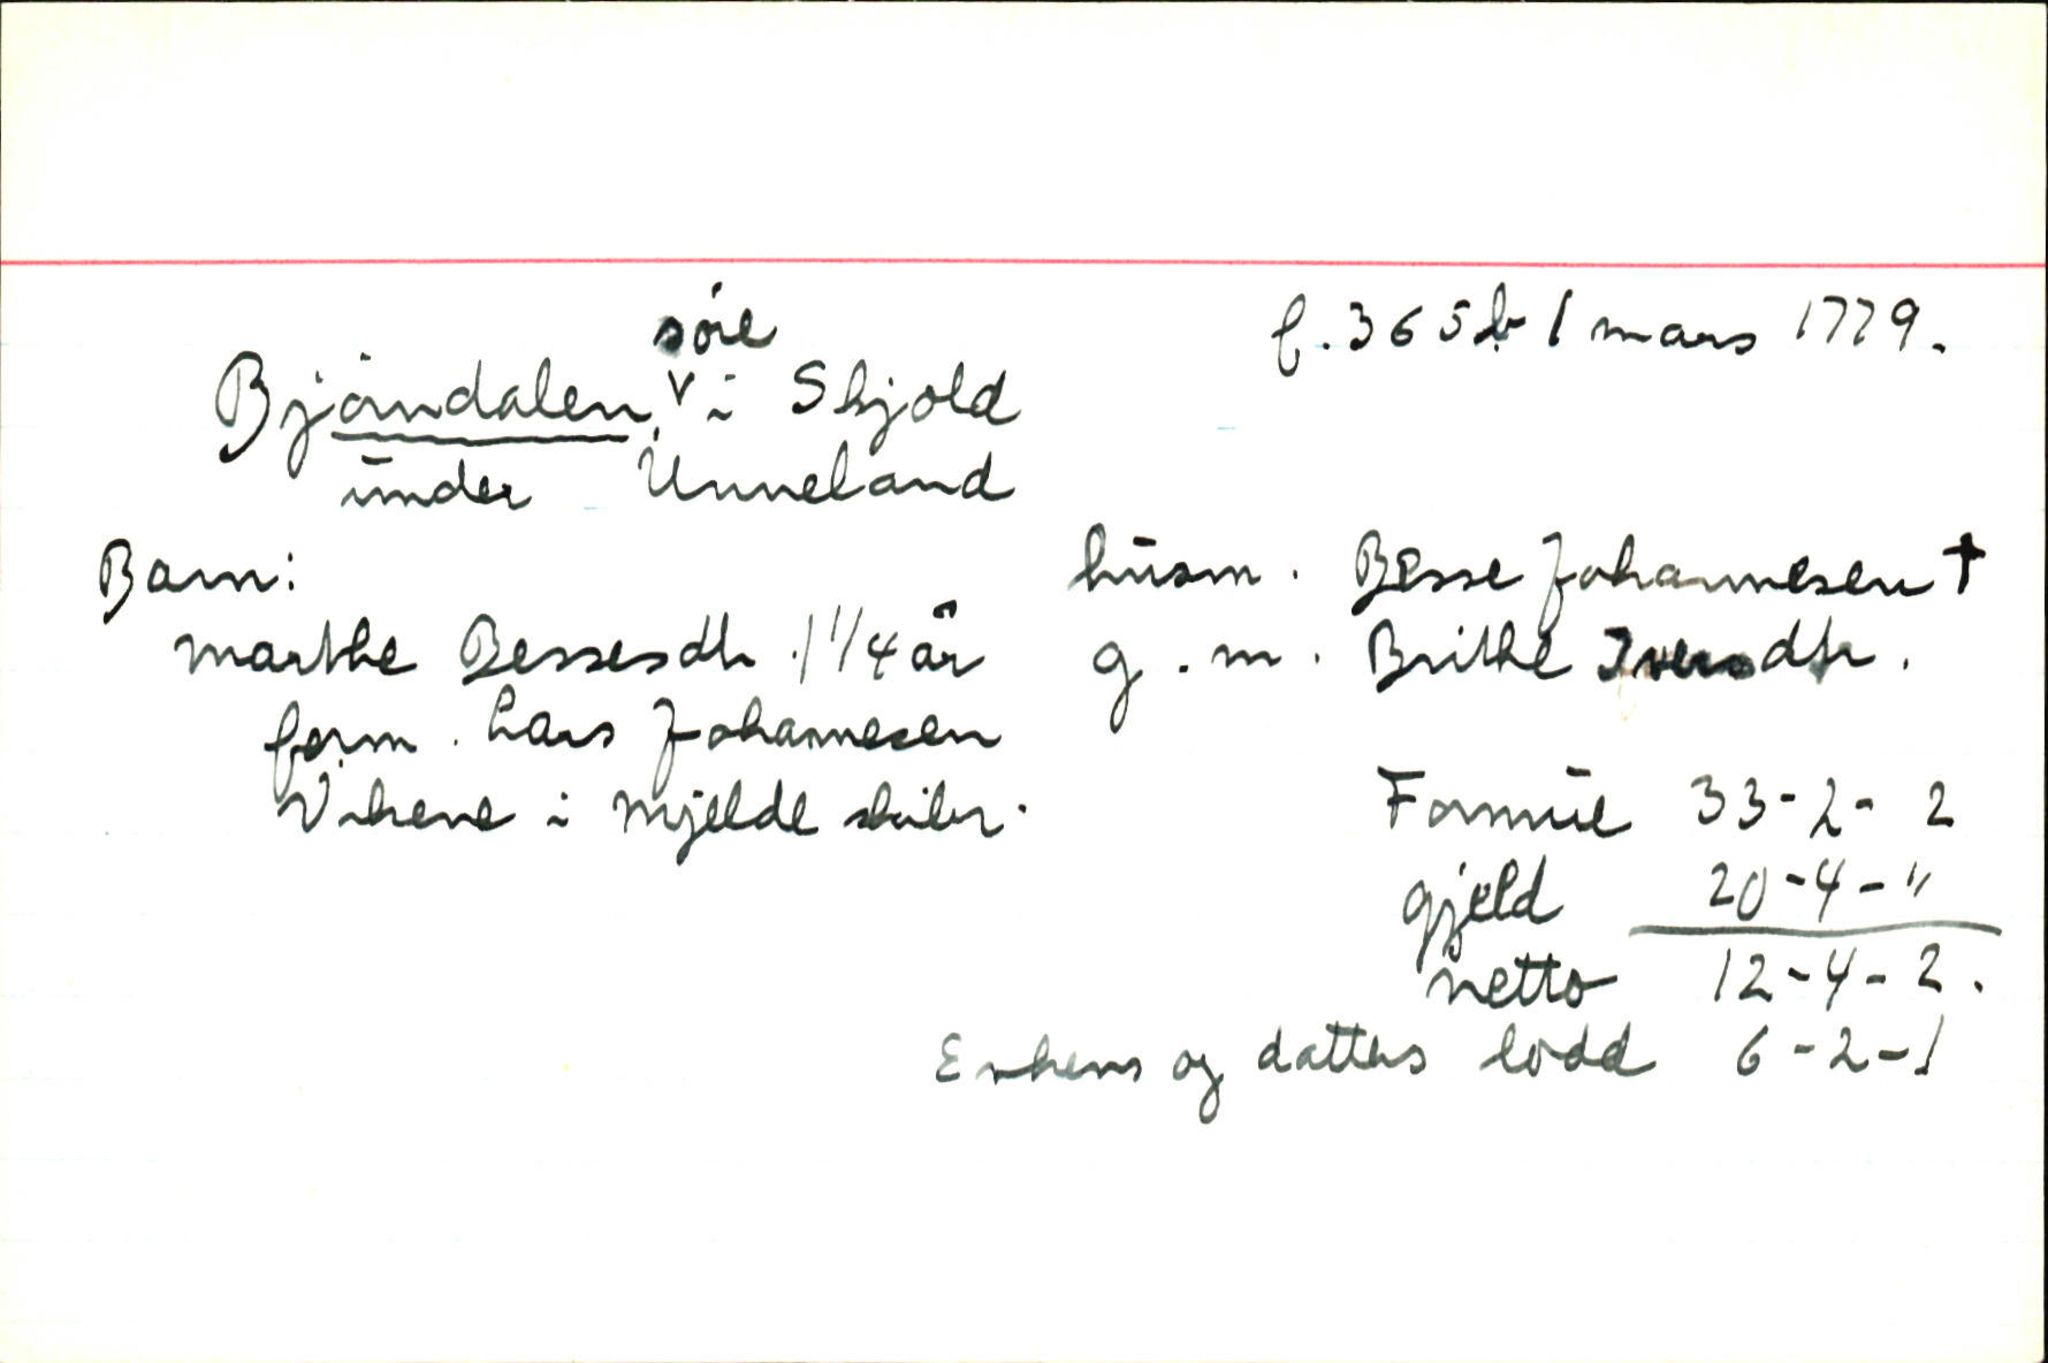 f. 365b 1 mars 1779.
søre
Bjöndalen, v i Skjold
under Unneland
Barn:
husm. Besse Johannesen †
Marthe Bessesdtr 1 1/4 år
g. m. Brithe Iversdtr.
form. Lars Johannesen
Vikene i Mjelde skibr.
Formue 33-2-2
gjeld 20-4-"
netto 12-4-2.
Enkens og datters lodd 6-2-1